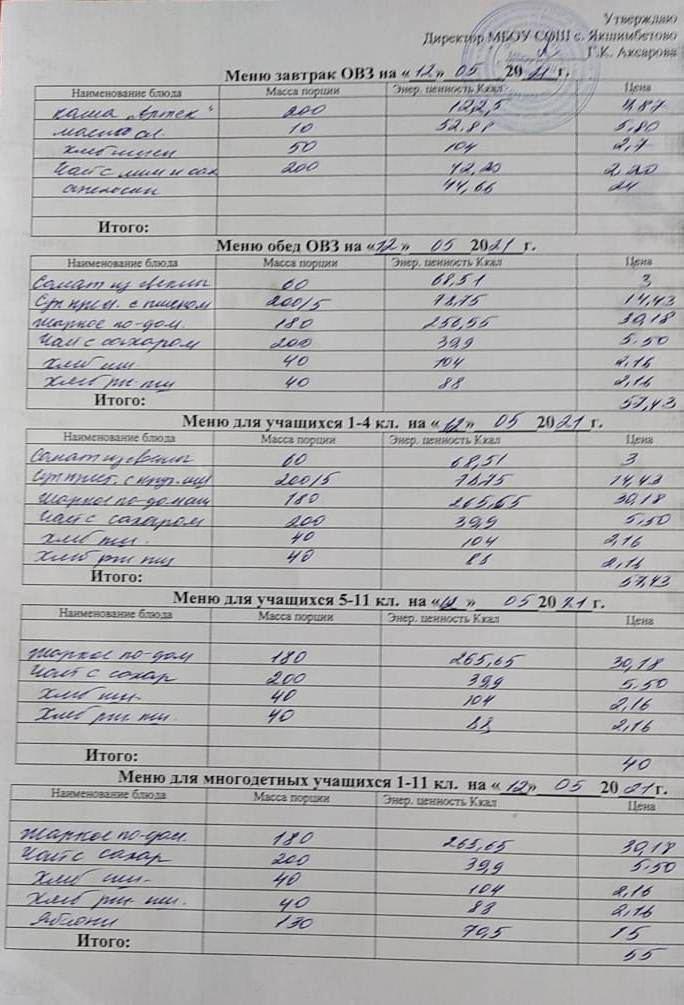 Утверждаю
Директор МБОУ СОШ с. Якшимбетово
Г.К. Аксарова
Меню завтрак ОВЗ на «12» 05 2021г.
Наименование блюда Масса порции Энер. ценность Ккал Цена
каша „Артек“ 200 122,5 4,87
масло сл 10 52,88 5,80
хлеб пшен 50 104 2,7
Чай с лим и сах 200 42,20 2,20
апельсин 44,66 24
Итого:
Меню обед ОВЗ на «12» 05 2021г.
Наименование блюда Масса порции Энер. ценность Ккал Цена
Салат из свеклы 60 68,51 3
Суп с пшеном 200/5 78,75 14,43
Жаркое по-дом. 180 250,55 30,18
Чай с сахаром 200 39,9 5.50
Хлеб пш 40 104 2,16
Хлеб рж-пш 40 88 2,16
Итого: 57,43
Меню для учащихся 1-4 кл. на «12» 05 2021г.
Наименование блюда Масса порции Энер. ценность Ккал Цена
Салат из свеклы 60 68,51 3
Суп 200/5 78,75 14,43
Жаркое по-домаш 180 265,65 30,18
Чай с сахаром 200 39,9 5,50
Хлеб пш. 40 104 2,16
Хлеб рж пш 40 88 2,16
Итого: 57,43
Меню для учащихся 5-11 кл. на «12» 05 2021г.
Наименование блюда Масса порции Энер. ценность Ккал Цена
Жаркое по-дом 180 265,65 30,18
Чай с сахар 200 39,9 5.50
Хлеб пш. 40 104 2,16
Хлеб рж пш. 40 88 2,16
Итого: 40
Меню для многодетных учащихся 1-11 кл. на «12» 05 2021г.
Наименование блюда Масса порции Энер. ценность Ккал Цена
Жаркое по-дом. 180 265,65 30,18
Чай с сахар 200 39,9 5.50
Хлеб пш. 40 104 2,16
Хлеб рж пш. 40 88 2,16
Яблоки 130 70,5 15
Итого: 55